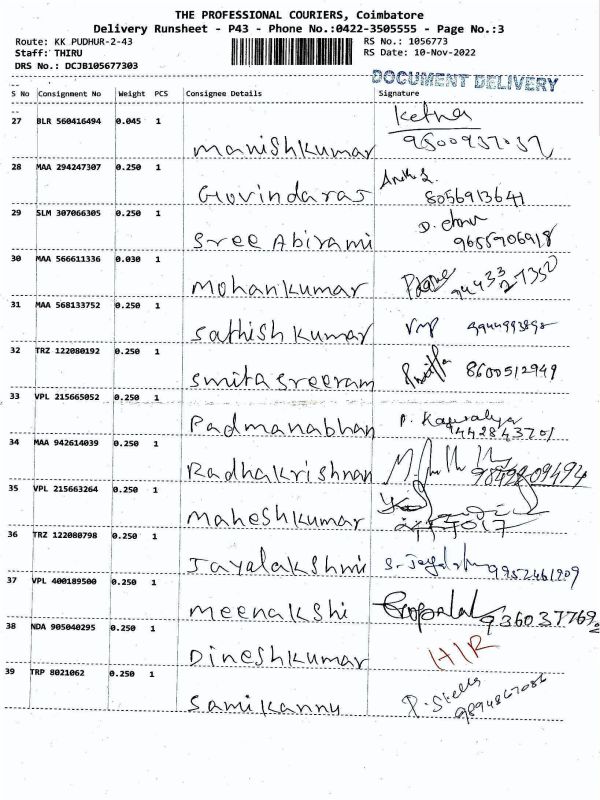 THE PROFESSIONAL COURIERS, Coimbatore
Delivery Runsheet - P43 - Phone No.:0422-3505555 - Page No.:3
Route: KK PUDHUR-2-43 RS No.: 1056773
Staff: THIRU RS Date: 10-Nov-2022
DRS No.: DCJB105677303
DOCUMENT DELIVERY
S No Consignment No Weight PCS Consignee Details Signature
27 BLR 560416494 0.045 1 Manishkumar Ketna
28 MAA 294247307 0.250 1 Govindaraj 8056913641
29 SLM 307066305 0.250 1 Sree Abirami 9655906918
30 MAA 566611336 0.030 1 Mohankumar
31 MAA 568133752 0.250 1 Sathish Kumar
32 TRZ 122080192 0.250 1 Smita Sreeram 8600512949
33 VPL 215665052 0.250 1 Padmanabhan
9442843701
34 MAA 942614039 0.250 1 Radhakrishnan
35 VPL 215663264 0.250 1 Maheshkumar
36 TRZ 122080798 0.250 1 Jayalakshmi
37 VPL 400189500 0.250 1 Meenakshi Gopalal 9360377692
38 NDA 905040295 0.250 1 Dineshkumar HIR
39 TRP 8021062 0.250 1 Samikannu P. Stella
9894867086